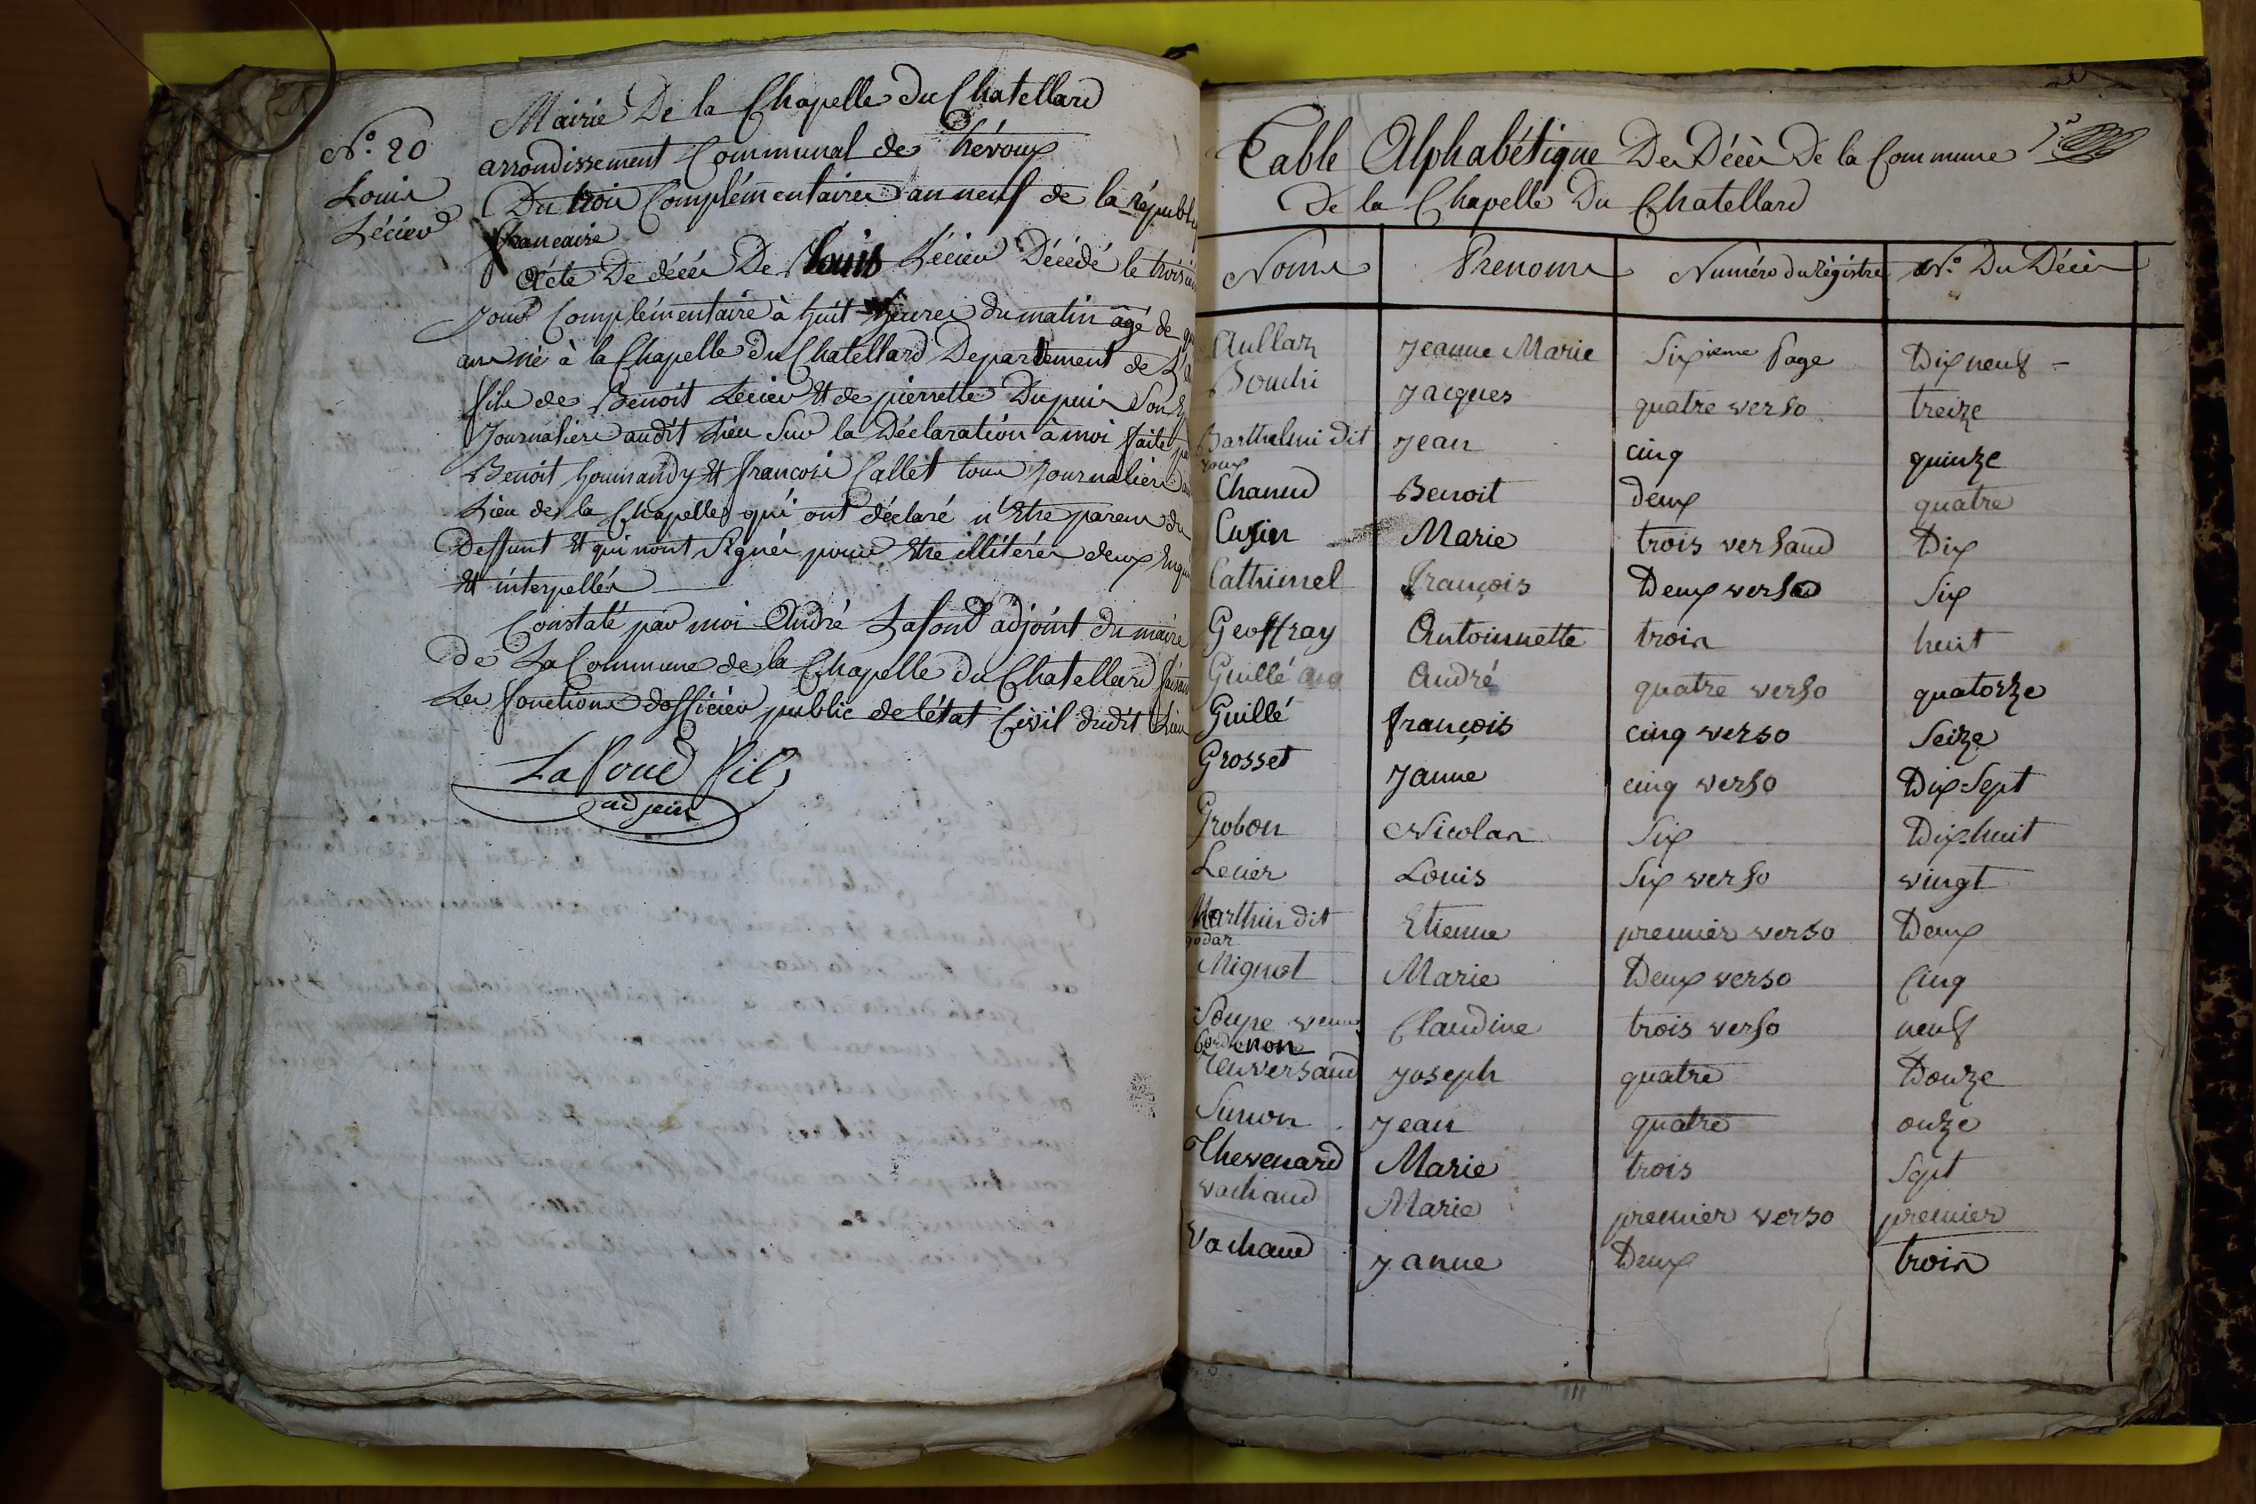 Mairie De la Chapelle Du Chatellard
arrondissement Communal de Thévoux
N.o 20
Louis
Lécier
Du trois Complémentaire an neuf de la républi
francaise
Acte De décès De Louis Lécier Décédé le troisie
jour Complémentaire à huit heures du matin agé de
ans né à la Chapelle Du Chatellard Departement de L'
fils de Benoit Lecier et de pierrette Dupuis Son
Journaliers audit Lieu Sur la Déclaration à moi faite
Benoit et francois Callet tous Journaliers
Lieu de la Chapelle qui ont déclaré n'Etre parens du
Deffunt et qui n'ont Signés pour Etre illitérés deux
et interpellés
Constaté par moi André Lafond adjoint du maire
de La Commune de la Chapelle du Chatellard faisant
Les fonctions d'officier public de l'état Civil dudit Lieu
Lafond fils
adjoint
Table Alphabétique Des Décès De la Commune
De la Chapelle Du Chatellard
Noms Prenoms Numéro du régistre N.o Du Décès
Aullaz Jeanne Marie Sixieme Page Dix neuf
Bouchi Jacques quatre verso treize
Barthelmi dit Jean cinq quinze
roux
Chanud Benoit deux quatre
Cusin Marie trois versaud Dix
Cathimel françois Deux verso Six
Geoffray Antoinnette trois huit
Guillé André quatre verso quatorze
Guillé françois cinq verso Seize
Grosset Janne cinq verso Dix-Sept
Grobon Nicolas Six Dix-huit
Lecier Louis Six verso vingt
Marthin dit Etienne premier verso Deux
godar
Mignot Marie Deux verso Cinq
Soupe veuve Claudine trois verso neuf
Joseph quatre Douze
Simon Jean quatre onze
Thevenard Marie trois Sept
vachaud Marie premier verso premier
Vachaud Janne Deux trois